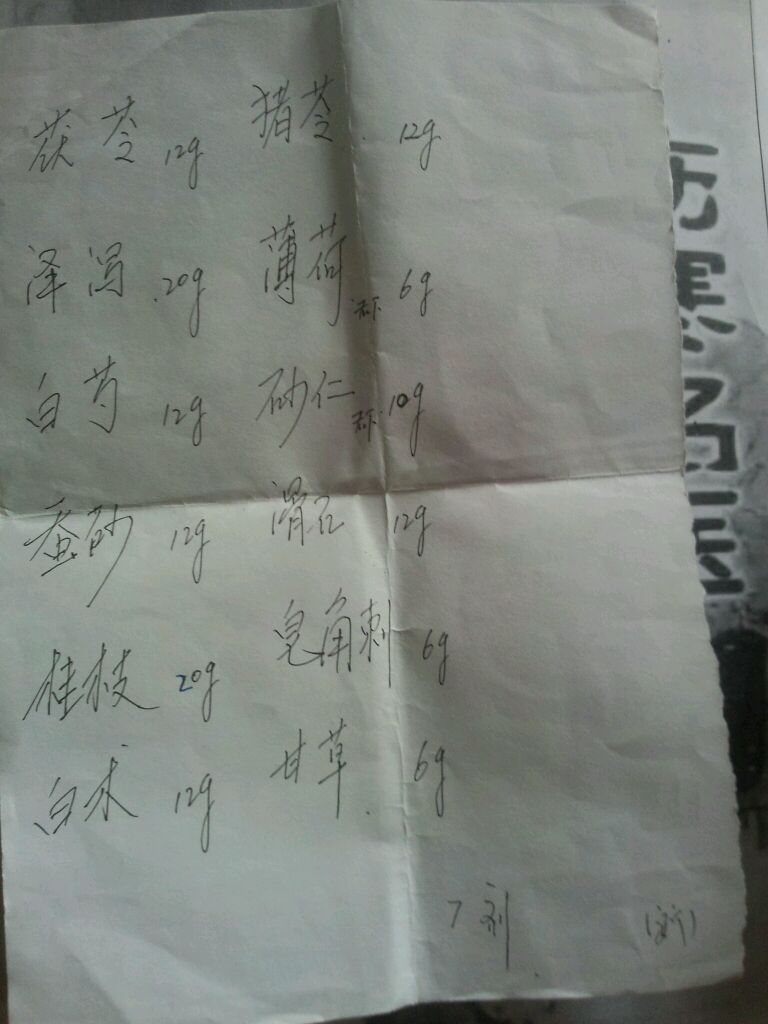 茯苓 12g 猪苓 12g
泽泻 20g 薄荷 后下 6g
白芍 12g 砂仁 后下 10g
蚕砂 12g 滑石 12g
桂枝 20g 皂角刺 6g
白术 12g 甘草 6g
7剂